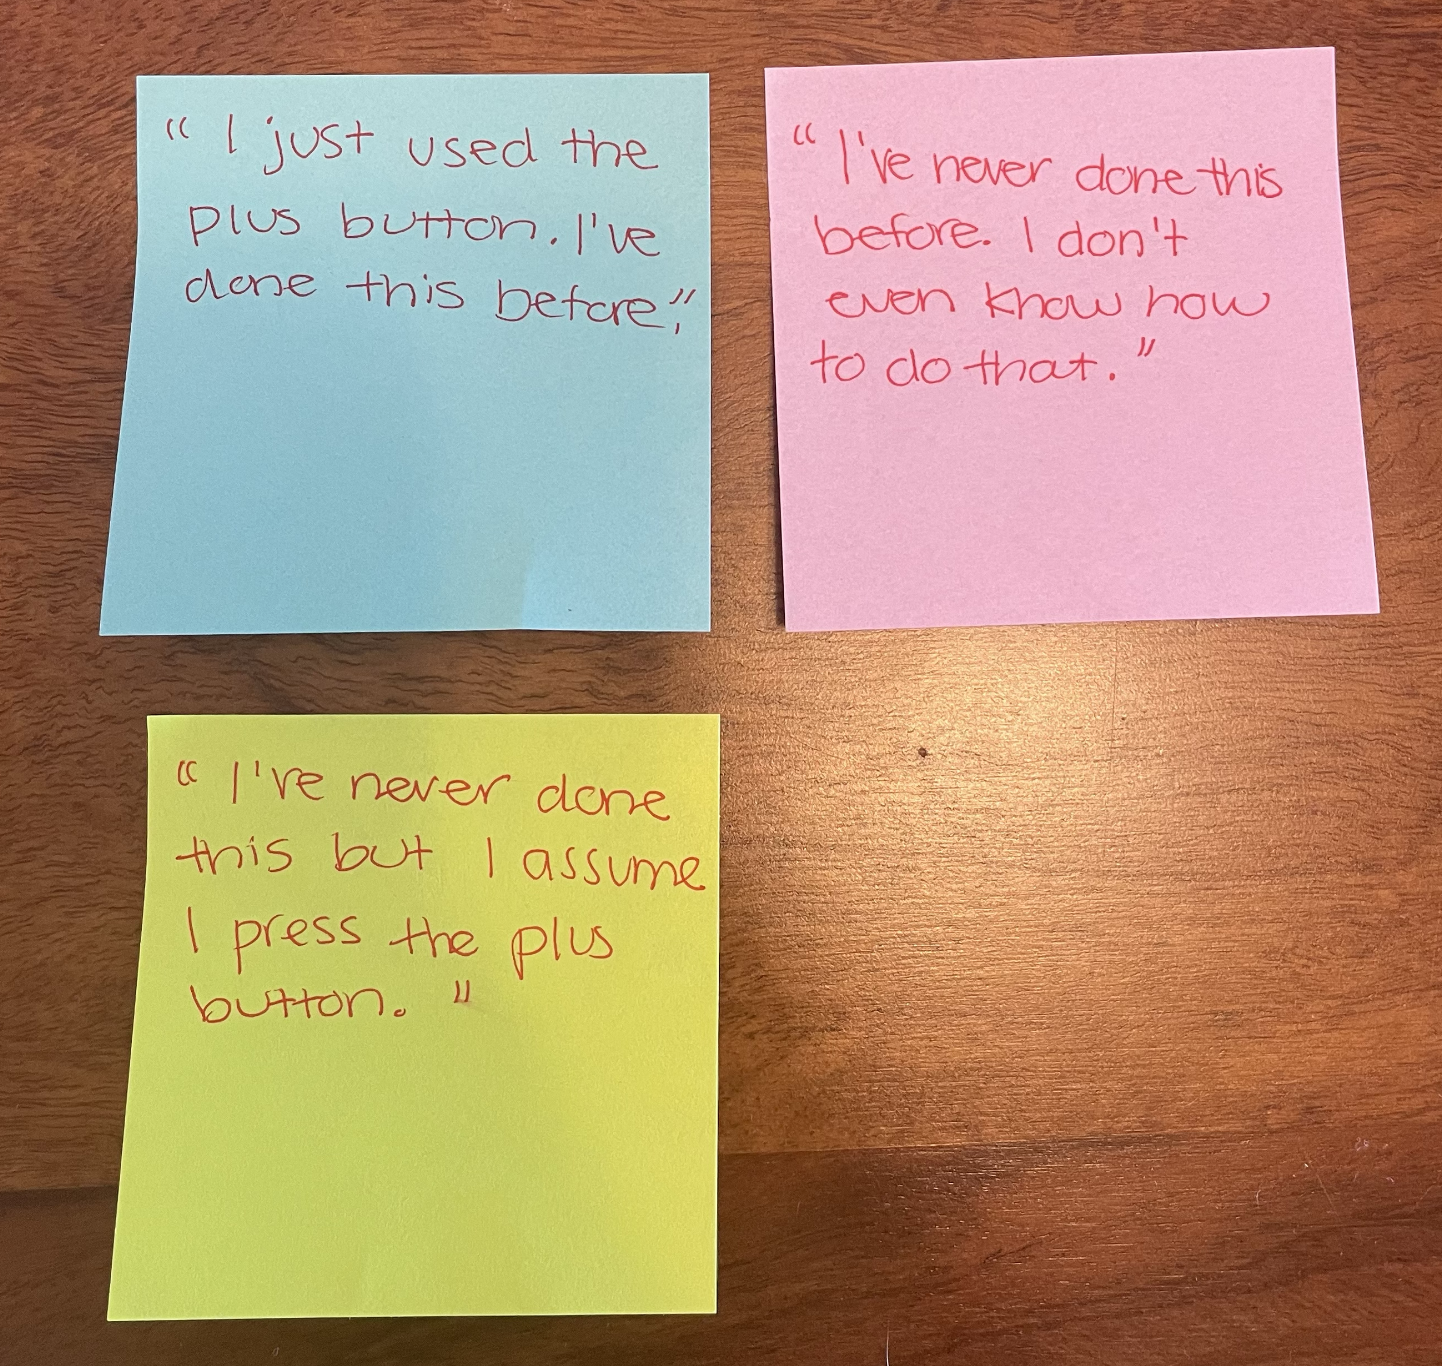 “I just used the
plus button. I've
done this before."
“I've never done this
before. I don't
even know how
to do that."
“I've never done
this but I assume
I press the plus
button."